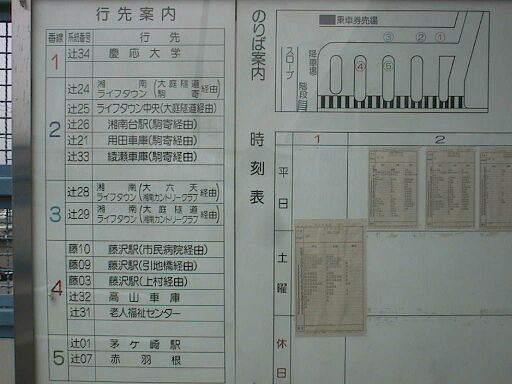 行先案内
番線 系統番号 行先
1 辻34 慶応大学
2 辻24 湘南ライフタウン(大庭隧道 駒寄 経由)
辻25 ライフタウン中央(大庭隧道経由)
辻26 湘南台駅(駒寄経由)
辻21 用田車庫(駒寄経由)
辻33 綾瀬車庫(駒寄経由)
3 辻28 湘南ライフタウン(大六天 湘南カントリークラブ 経由)
辻29 湘南ライフタウン(大庭隧道 湘南カントリークラブ 経由)
4 藤10 藤沢駅(市民病院経由)
藤09 藤沢駅(引地橋経由)
藤03 藤沢駅(上村経由)
辻32 高山車庫
辻31 老人福祉センター
5 辻01 茅ヶ崎駅
辻07 赤羽根
のりば案内
乗車券売場
③ ② ①
④ ⑤
降車場
スロープ
階段
時刻表
1 2
平日
土曜
休日